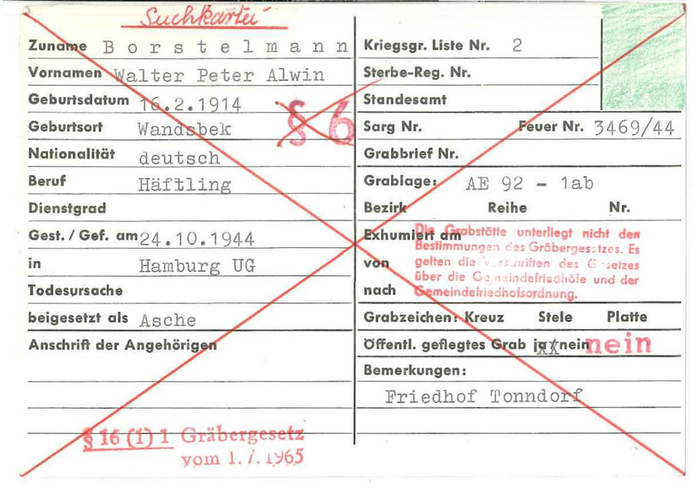 Suchkartei
Zuname Borstelmann
Vornamen Walter Peter Alwin
Geburtsdatum 16.2.1914
§ 6
Geburtsort Wandsbek
Nationalität deutsch
Beruf Häftling
Dienstgrad
Gest. / Gef. am 24.10.1944
in Hamburg UG
Todesursache
beigesetzt als Asche
Anschrift der Angehörigen
§ 16 (1) 1 Gräbergesetz
vom 1.7.1965
Kriegsgr. Liste Nr. 2
Sterbe-Reg. Nr.
Standesamt
Sarg Nr. Feuer Nr. 3469/44
Grabbrief Nr.
Grablage: AE 92 - 1ab
Bezirk Reihe Nr.
Exhumiert am
von
nach
Die Grabstätte unterliegt nicht den
Bestimmungen des Gräbergesetzes. Es
gelten die Vorschriften des Gesetzes
über die Gemeindefriedhöfe und der
Gemeindefriedhofsordnung.
Grabzeichen: Kreuz Stele Platte
Öffentl. gepflegtes Grab ja/nein nein
Bemerkungen:
Friedhof Tonndorf